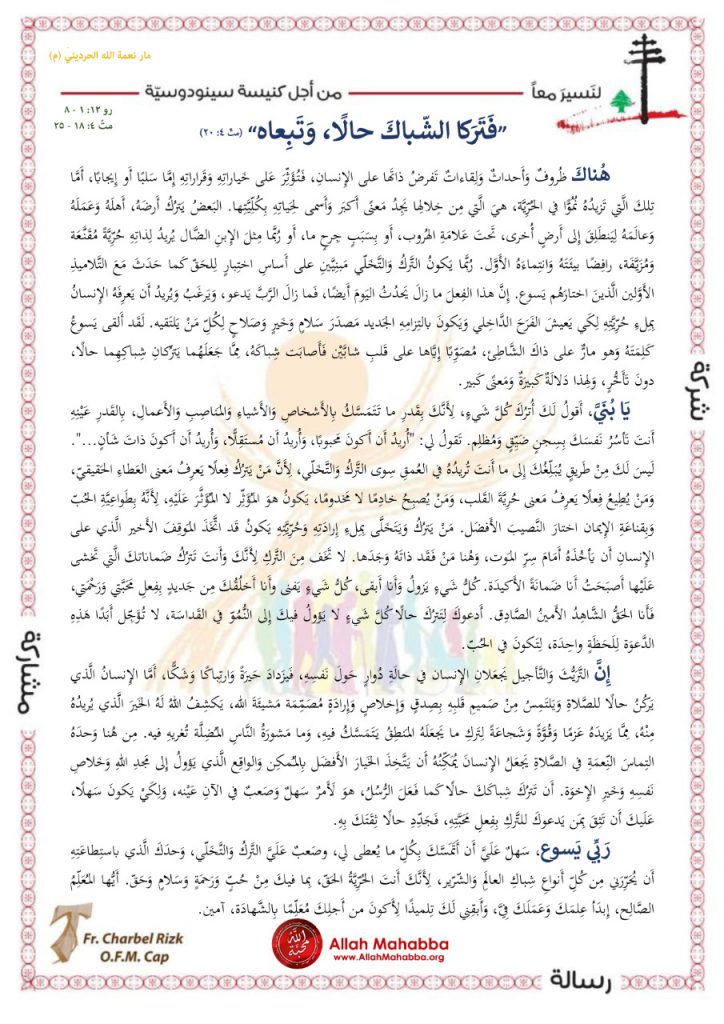 مار نعمة الله الحرديني (م)
لنَسيرَ معاً
من أجل كنيسة سينودوسيّة
رو ١٢: ١ - ٨
متّ ٤: ١٨ - ٢٥
"فَتَرَكا الشّباكَ حالًا، وَتَبِعاه" (متّ ٤: ٢٠)
هُناكَ ظُروفٌ وَأَحداثٌ وَلِقاءاتٌ تَفرضُ ذاتَها على الإنسانِ، فَتُؤَثِّرُ عَلى خَياراتِهِ وَقَراراتِهِ إِمَّا سَلبًا أَو إِيجابًا، أَمَّا
تِلكَ الَّتي تَزيدُهُ نُمُوًّا في الحُرِّيَّة، هيَ الَّتي مِن خِلالِها يَجِدُ مَعنًى أَكبَرَ وَأَسمى لحَياتِهِ بِكُلِّيَّتِها. البَعضُ يَترُكُ أَرضَهُ، أَهلَهُ وَعَمَلَهُ
وَعالَمَهُ لِيَنطَلِقَ إِلى أَرضٍ أُخرى، تَحتَ عَلامَةِ الهُروب، أَو بِسَبَبِ جرحٍ ما، أَو رُبَّما مِثلَ الإبنِ الضّال يُريدُ لِذاتِهِ حُرِّيَّةً مُقَنَّعَة
وَمُزَيَّفَة، رافِضًا بيئَتَهُ وَانتِماءَهُ الأَوَّل. رُبَّما يَكونُ التَّركُ وَالتَّخَلّي مَبنِيَّينِ على أَساسِ اختِبارٍ لِلحَقّ كَما حَدَثَ مَعَ التَّلاميذِ
الأَوَّلين الَّذينَ اختارَهُم يَسوع. إِنَّ هذا الفِعلَ ما زالَ يَحدُثُ اليَومَ أَيضًا، فَما زالَ الرَّبُّ يَدعو، وَيَرغَبُ وَيُريدُ أَن يَعرِفَهُ الإنسانُ
بِملءِ حُرِّيَّتِهِ لِكَي يَعيشَ الفَرَحَ الدَّاخِلي وَيَكونَ بالتِزامِهِ الجَديد مَصدَرَ سَلامٍ وَخَيرٍ وَصَلاحٍ لِكُلِّ مَنْ يَلتَقيه. لَقَد أَلقى يَسوعُ
كَلِمَتَهُ وَهو مارٌّ على ذاكَ الشَّاطِئ، مُصَوِّبًا إِيَّاها على قَلبِ شابَّيْنِ فَأَصابَت شِباكَهُ، مِمَّا جَعَلَهُما يَترُكانِ شِباكَهِما حالًا،
دونَ تَأَخُّرٍ، وَلِهذا دَلالَةٌ كَبيرَةٌ وَمَعنًى كَبير.
يا بُنَيَّ، أَقولُ لَكَ أُترُكْ كُلَّ شَيءٍ، لِأَنَّكَ بِقَدرِ ما تَتَمَسَّكُ بِالأَشخاصِ وَالأَشياءِ وَالمَناصِبِ وَالأَعمالِ، بِالقَدرِ عَيْنِهِ
أَنتَ تَأسُرُ نَفسَكَ بِسِجنٍ ضَيِّقٍ وَمُظلِم. تَقولُ لي: "أُريدُ أَن أَكونَ مَحبوبًا، وَأُريدُ أَن مُستَقِلًّا، وَأُريدُ أَن أَكونَ ذاتَ شَأنٍ...".
لَيسَ لَكَ مِنْ طَريقٍ يُبَلِّغُكَ إِلى ما أَنتَ تُريدُهُ في العُمقِ سِوى التَّركُ وَالتَّخَلّي، لِأَنَّ مَنْ يَترُكُ فِعلًا يَعرِفُ مَعنى العَطاءِ الحَقيقيّ،
وَمَنْ يُطيعُ فِعلًا يَعرِفُ مَعنى حُرِّيَّةِ القَلب، وَمَنْ يُصبِحُ خادِمًا لا مَخدومًا، يَكونُ هوَ المُؤَثِّر لا المُؤَثَّرَ عَلَيْهِ، لِأَنَّهُ بِطَواعِيَّةِ الحُبّ
وَبِقَناعَةِ الإيمان اختارَ النَّصيبَ الأَفضَل. مَنْ يَترُكُ وَيَتَخَلَّى بِملءِ إِرادَتِهِ وَحُرِّيَّتِهِ يَكونُ قَد اتَّخَذَ المَوقِفَ الأَخير الَّذي على
الإنسانِ أَن يَأخُذَهُ أَمامَ سِرِّ المَوت، وَهُنا مَنْ فَقَد ذاتَهُ وَجَدَها. لا تَخَف مِنَ التَّركِ لِأَنَّكَ وَأَنتَ تَترُكُ ضَماناتَكَ الَّتي تَخشى
عَلَيْها أَصبَحتُ أَنا ضَمانةَ الأَكيدَة. كُلُّ شَيءٍ يَزولُ وَأَنا أَبقى، كُلُّ شَيءٍ يَفنى وَأَنا أَخلُقُكَ مِن جَديدٍ بِفِعلِ مَحَبَّتي وَرَحمَتي،
فَأَنا الحَقُّ الشَّاهِدُ الأَمينُ الصَّادِق. أَدعوكَ لِتَترُكَ حالًا كُلَّ شَيءٍ لا يَؤولُ فيكَ إِلى النُّمُوِّ في القَداسَة، لا تُؤَجِّل أَبَدًا هَذِهِ
الدَّعوَة لِلَحظَةٍ واحِدَة، لِتَكونَ في الحُبّ.
إِنَّ التَّرَيُّثَ وَالتَّأجيل يَجعَلانِ الإنسان في حالَةِ دُوارٍ حَولَ نَفسِهِ، فَيَزدادَ حَيرَةً وَارتِباكًا وَشَكًّا، أَمَّا الإنسانُ الَّذي
يَركُنُ حالًا للصَّلاةِ وَيَلتَمِسُ مِنْ صَميمِ قَلبِهِ بِصِدقٍ وَإِخلاصٍ وَإِرادَةٍ مُصَمِّمَة مَشيئَةَ الله، يَكشِفُ اللهُ لَهُ الخَيرَ الَّذي يُريدُهُ
مِنْهُ، مِمَّا يَزيدَهُ عَزمًا وَقُوَّةً وَشَجاعَةً لِتَركِ ما يَجعَلَهُ المَنطِقُ يَتَمَسَّكُ فيهِ، وَما مَشورَةُ النَّاسِ المُضِلَّة تُغريهِ فيه. مِن هُنا وَحدَهُ
التِماسَ النِّعمَةِ في الصَّلاةِ يَجعَلُ الإنسانَ يُمَكِنُهُ أَن يَتَّخِذَ الخَيارَ الأَفضَل بِالمُمكِن وَالواقِع الَّذي يَؤولُ إِلى مَجدِ اللهِ وَخَلاصِ
نَفسِهِ وَخَيرِ الإخوَة. أَن تَترُكَ شِباكَكَ حالًا كَما فَعَلَ الرُّسُلُ، هوَ لَأَمرٌ سَهلٌ وَصَعبٌ في الآنِ عَيْنِه، وَلِكَيْ يَكونَ سَهلًا،
عَلَيكَ أَن تَثِقَ بِمَن يَدعوكَ للتَّركِ بِفِعلِ مَحَبَّتِهِ، فَجَدِّد حالًا ثِقَتَكَ بِهِ.
رَبّي يَسوع، سَهلٌ عَلَيَّ أَن أَتَمَسَّكَ بِكُلِّ ما يُعطى لي، وصَعبٌ عَلَيَّ التَّركُ وَالتَّخَلّي، وَحدَكَ الَّذي باستِطاعَتِهِ
أَن يُحَرِّرَني مِن كُلِّ أَنواعِ شِباكِ العالَمِ وَالشِّرّير، لِأَنَّكَ أَنتَ الحُرِّيَّةُ الحَقّ، بِما فيكَ مِنْ حُبٍّ وَرَحمَةٍ وَسَلامٍ وَحَقّ. أَيُّها المُعَلِّمُ
الصَّالِح، إِبدَأ عِلمَكَ وَعَمَلَكَ فِيَّ، وَأَبقِني لَكَ تِلميذًا لِأَكونَ مِن أَجلِكَ مُعَلِّمًا بِالشَّهادَة، آمين.
شركة
مشاركة
رسالة
Fr. Charbel Rizk
O.F.M. Cap
الله محبّة
Allah Mahabba
www.AllahMahabba.org